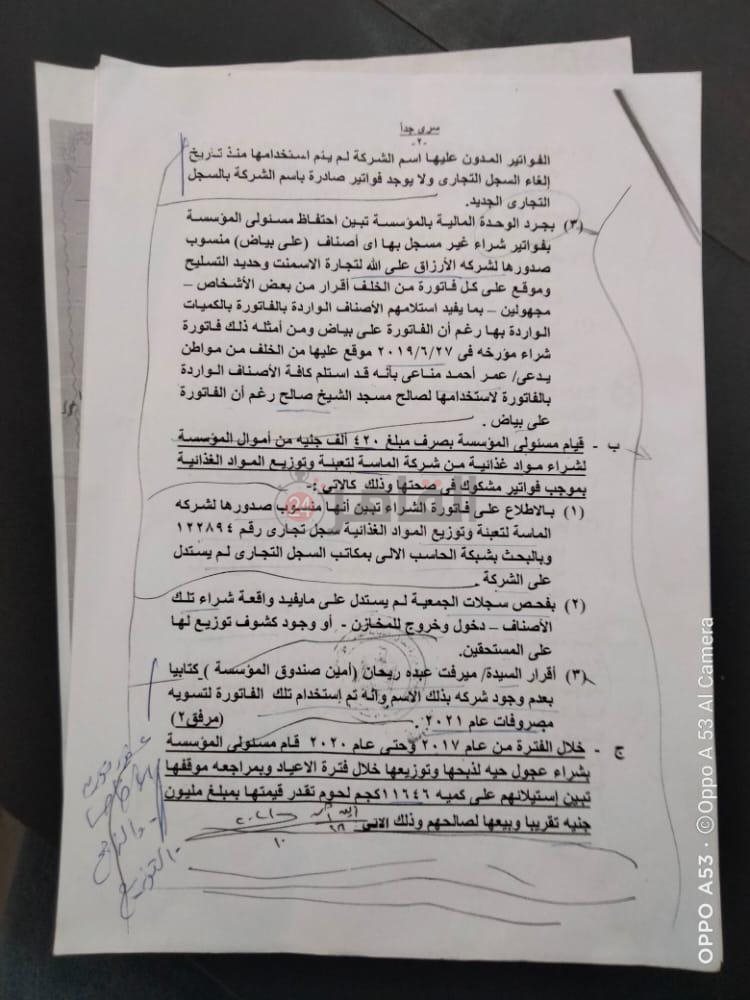 سرى جدا
-٢-
الفواتير المدون عليها اسم الشركة لم يتم استخدامها منذ تاريخ
إلغاء السجل التجارى ولا يوجد فواتير صادرة باسم الشركة بالسجل
التجارى الجديد.
(٣) بجرد الوحدة المالية بالمؤسسة تبين احتفاظ مسئولى المؤسسة
بفواتير شراء غير مسجل بها اى أصناف (على بياض) منسوب
صدورها لشركه الأرزاق على الله لتجارة الاسمنت وحديد التسليح
وموقع على كل فاتورة من الخلف أقرار من بعض الأشخاص –
مجهولين – بما يفيد استلامهم الأصناف الواردة بالفاتورة بالكميات
الواردة بها رغم أن الفاتورة على بياض ومن أمثله ذلك فاتورة
شراء مؤرخه فى ٢٠١٩/٦/٢٧ موقع عليها من الخلف من مواطن
يدعى/ عمر أحمد مناعى بأنه قد استلم كافة الأصناف الواردة
بالفاتورة لاستخدامها لصالح مسجد الشيخ صالح رغم أن الفاتورة
على بياض .
ب - قيام مسئولى المؤسسة بصرف مبلغ ٤٢٠ ألف جنيه من أموال المؤسسة
لشراء مواد غذائية من شركة الماسة لتعبئة وتوزيع المواد الغذائية
بموجب فواتير مشكوك فى صحتها وذلك كالاتى :-
(١) بالاطلاع على فاتورة الشراء تبين أنها منسوب صدورها لشركه
الماسة لتعبئة وتوزيع المواد الغذائية سجل تجارى رقم ١٢٢٨٩٤
وبالبحث بشبكة الحاسب الالى بمكاتب السجل التجارى لم يستدل
على الشركة .
(٢) بفحص سجلات الجمعية لم يستدل على مايفيد واقعة شراء تلك
الأصناف – دخول وخروج للمخازن - أو وجود كشوف توزيع لها
على المستحقين.
(٣) أقرار السيدة/ ميرفت عبده ريحان (أمين صندوق المؤسسة ) كتابيا
بعدم وجود شركه بذلك الاسم وانه تم إستخدام تلك الفاتورة لتسويه
مصروفات عام ٢٠٢١ . (مرفق٢)
ج - خلال الفترة من عام ٢٠١٧ وحتى عام ٢٠٢٠ قام مسئولى المؤسسة
بشراء عجول حيه لذبحها وتوزيعها خلال فترة الاعياد وبمراجعه موقفها
تبين إستيلائهم على كميه ١١٦٤٦كجم لحوم تقدر قيمتها بمبلغ مليون
جنيه تقريبا وبيعها لصالحهم وذلك الاتى
القاهرة 24
OPPO A53 · ©Oppo A 53 AI Camera